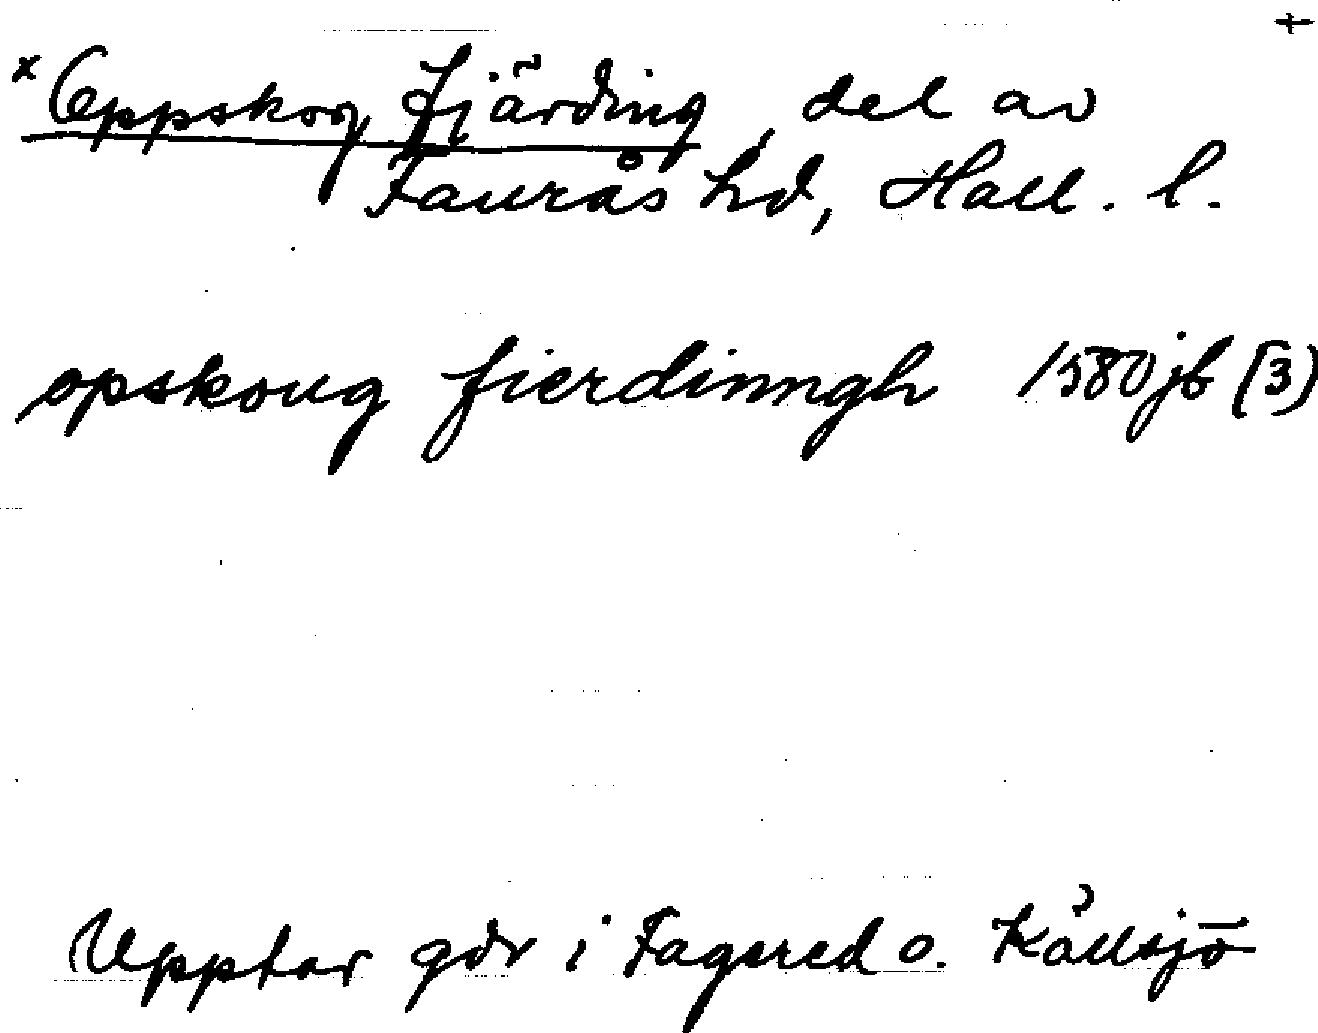 +
x Oppskog fjärding, del av
Faurås hd, Hall. l.
opskoug fierdinngh 1580 jb (3)
Upptar gdr i Fagered o. Källsjö